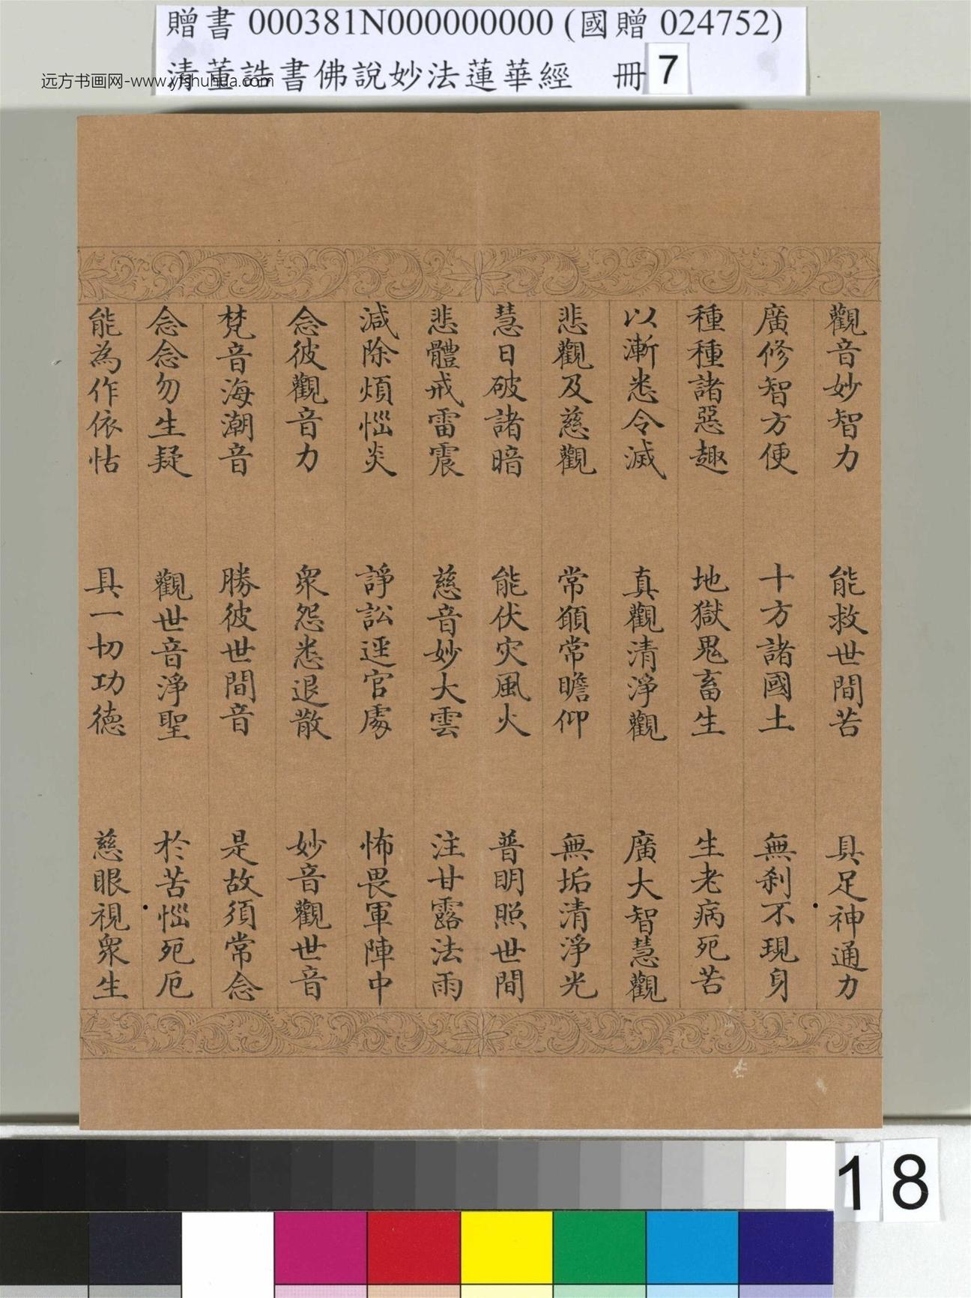 贈書 000381N000000000 (國贈 024752)
清董誥書佛說妙法蓮華經 冊 7
远方书画网-www.yfshuhua.com
觀音妙智力 能救世間苦 具足神通力
廣修智方便 十方諸國土 無刹不現身
種種諸惡趣 地獄鬼畜生 生老病死苦
以漸悉令滅 真觀清淨觀 廣大智慧觀
悲觀及慈觀 常願常瞻仰 無垢清淨光
慧日破諸暗 能伏灾風火 普明照世間
悲體戒雷震 慈音妙大雲 注甘露法雨
減除煩惱炎 諍訟逕官處 怖畏軍陣中
念彼觀音力 衆怨悉退散 妙音觀世音
梵音海潮音 勝彼世間音 是故須常念
念念勿生疑 觀世音淨聖 於苦惱死厄
能為作依怙 具一切功德 慈眼視衆生
18